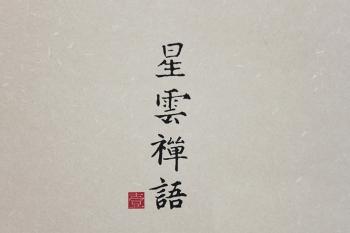 星雲禪語
壹